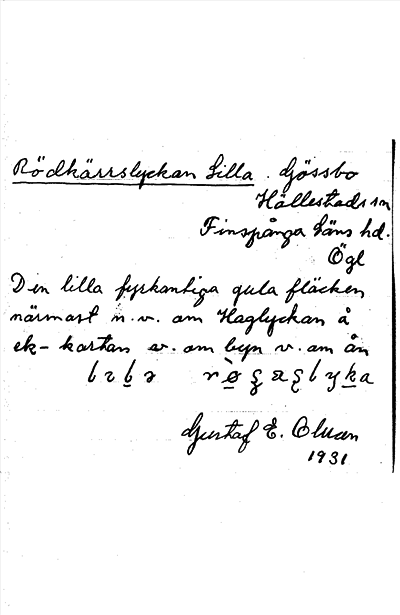 Rödkärrslyckan Lilla. Gössbo
Hällestads sn
Finspånga läns hd.
Ögl
Den lilla fyrkantiga gula fläcken
närmast n.v. om Haglyckan å
ek-kartan sv. om byn v. om ån
Gustaf E. Olsson
1931